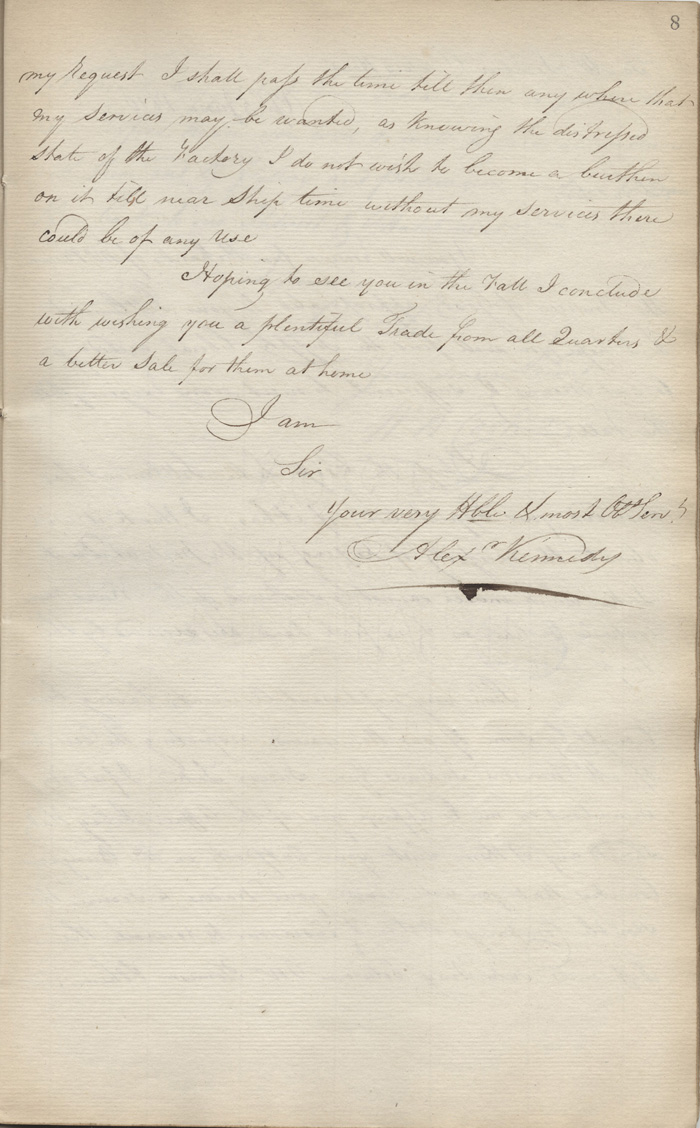 8
my Request I shall pass the time till then any where that
my Services may be wanted, as Knowing the distressed
state of the Factory I do not wish to become a burthen
on it till near Ship time without my services there
could be of any use
Hoping to see you in the Fall I conclude
with wishing you a plentiful Trade from all Quarters &
a better Sale for them at home
I am
Sir
Your very Hble & most Obt Servt
Alexr Kennedy